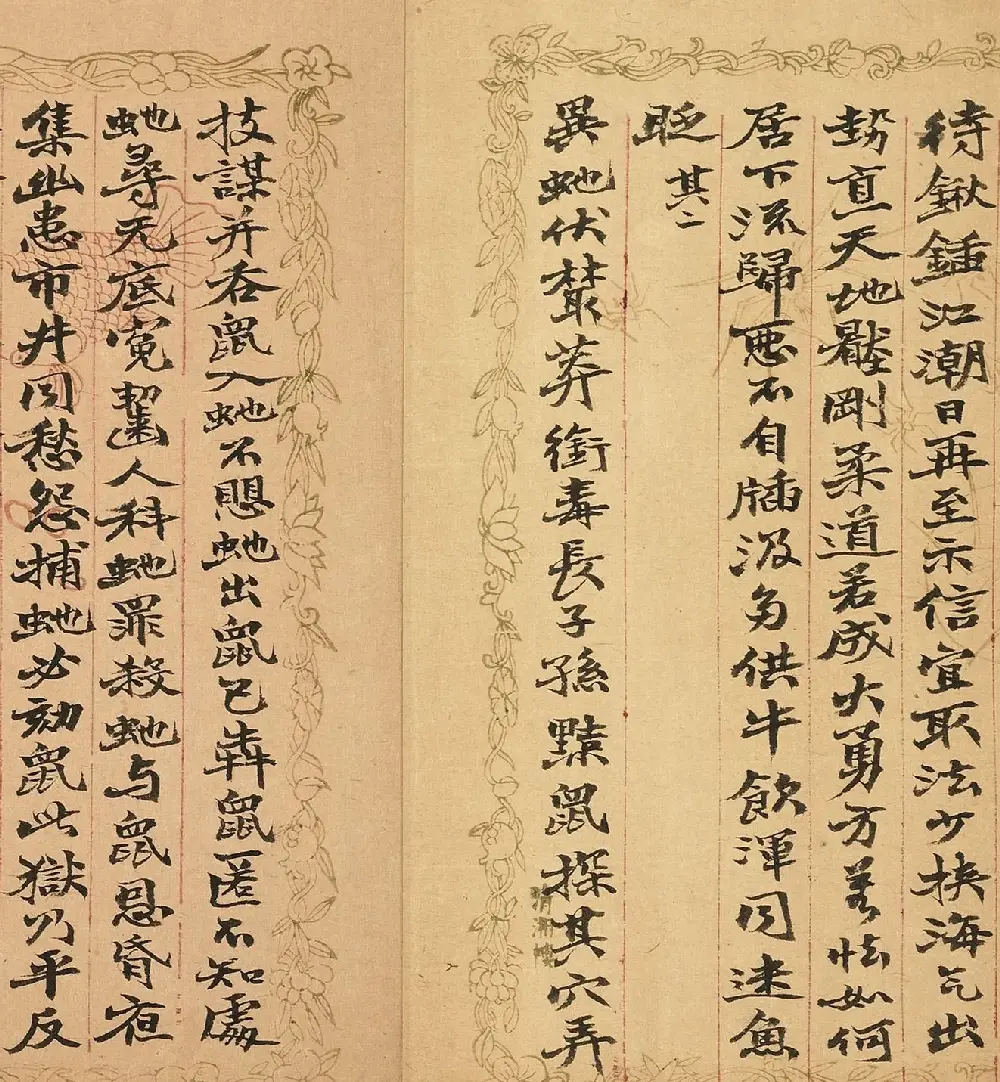 待鍬鍤江潮日再至示信宜取法少挾海气出
勢亘天地壓剛柔道若成大勇方羞怯如何
居下流歸惡不自牐汲多供牛飲渾同迷魚
眨 其二
異虵伏叢莽銜毒長子孫黠鼠探其穴弄
技謀并吞鼠入虵不愳虵出鼠已犇鼠匿不知處
虵尋无底冤齧人科虵罪殺虵与鼠恩昏夜
集凶患市井同愁怨捕虵必劾鼠此獄乃平反